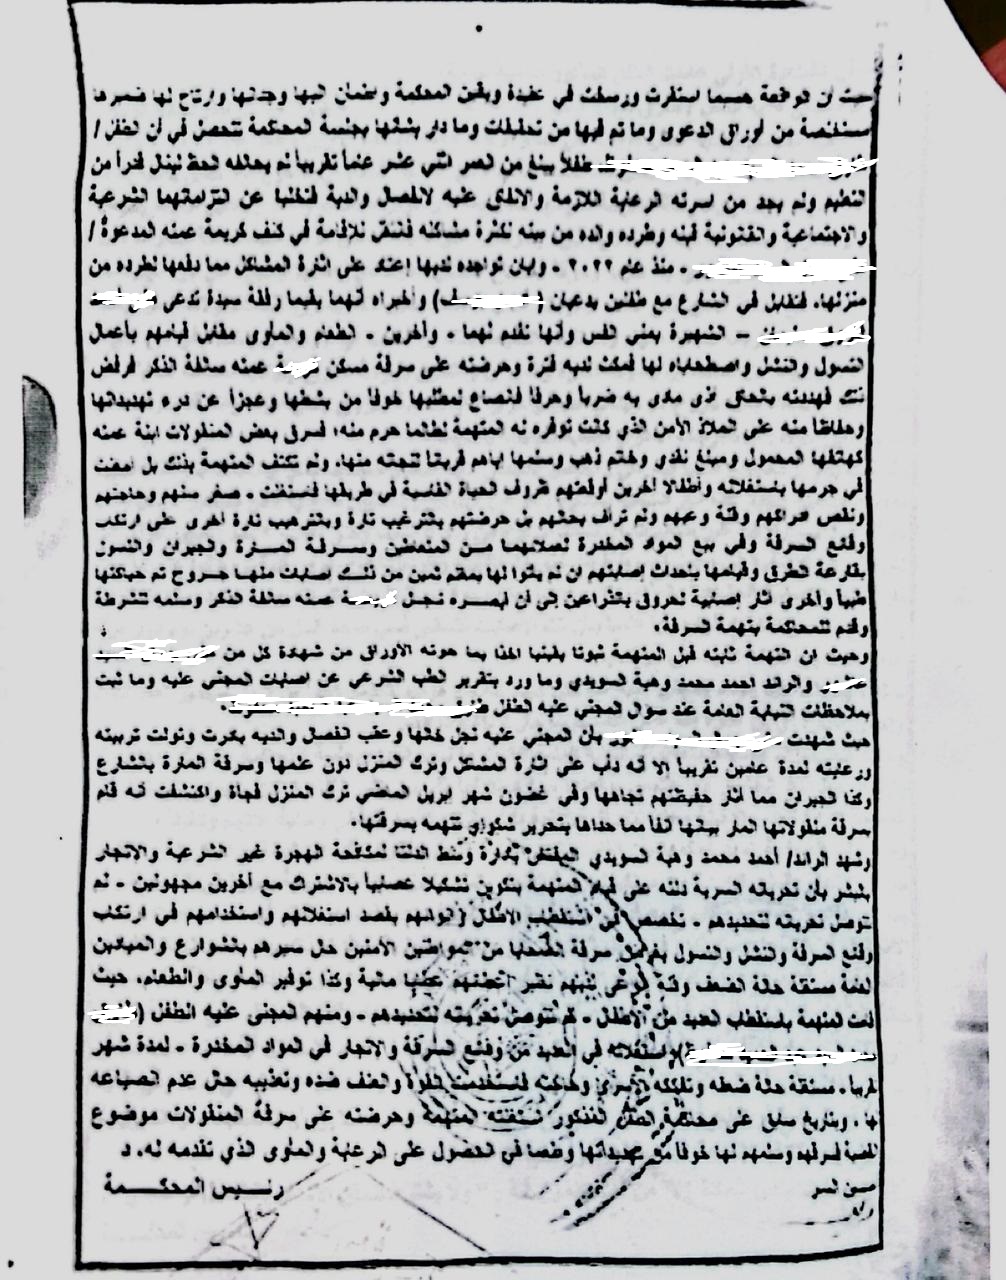 حيث ان الواقعة حسبما استقرت ورسخت في عقيدة ويقين المحكمة واطمأن اليها وجدانها وارتاح لها ضميرها
مستخلصة من أوراق الدعوى وما تم فيها من تحقيقات وما دار بشأنها بجلسة المحاكمة تتحصل في أن الطفل /
طفلاً يبلغ من العمر اثني عشر عاماً تقريباً لم يحالفه الحظ لينال قدراً من
التعليم ولم يجد من اسرته الرعاية اللازمة والاخلاق عليه لانفصال والدية فتخليا عن التزاماتهما الشرعية
والاجتماعية والقانونية قبله وطرده والده من بيته لكثرة مشاكله فانتقل للإقامة في كنف كريمة عمته المدعوة /
- منذ عام ٢٠٢٢ - وإبان تواجده لديها إعتاد على اثارة المشاكل مما دفعها لطرده من
منزلها، فتقابل في الشارع مع طفلين يدعيان ( ) وأخبراه أنهما يقيما رفقة سيدة تدعى
– الشهيرة بمنى القس وأنها تقدم لهما - وآخرين - الطعام والمأوى مقابل قيامهم بأعمال
التسول والنشل واصطحاباه لها فمكث لديه فترة وحرضته على سرقة مسكن عمته سالفة الذكر فرفض
ذلك فهددته بالتعدي عليه ضرباً وحرقاً فانصاع لمطلبها خوفاً من بطشها وعجزاً عن درء تهديداتها
وحفاظاً منه على الملاذ الأمن الذي كانت توفره له المتهمة لطالما حرم منه، فسرق بعض المنقولات ابنة عمته
كهاتفها المحمول ومبلغ نقدي وخاتم ذهب وسلمها اياهم قربانا لنجاته منها، ولم تكتف المتهمة بذلك بل أمعنت
في جرمها باستغلاله وأطفالا آخرين أوقعتهم ظروف الحياة القاسية في طريقها فاستغلت - صغر سنهم وحاجتهم
ونقص ادراكهم وقلة وعيهم ولم ترأف بحالهم بل حرضتهم بالترغيب تارة وبالترهيب تارة أخرى على ارتكاب
وقائع السرقة وفي بيع المواد المخدرة لعملائها من المتعاطين وسرقة المارة والجيران والتسول
بقارعة الطرق وقيامها بإحداث إصابتهم ان لم يأتوا لها بمغنم ثمين من ذلك اصابات منها جروح تم حياكتها
طبياً وأخرى آثار إصابية لحروق بالذراعين إلى أن أبصره نجل عمته سالفة الذكر وسلمه للشرطة
وقدم للمحاكمة بتهمة السرقة.
وحيث ان التهمة ثابته قبل المتهمة ثبوتا يقينيا اخذا بما حوته الأوراق من شهادة كل من
والرائد احمد محمد وهبة السويدي وما ورد بتقرير الطب الشرعي عن اصابات المجني عليه وما ثبت
بملاحظات النيابة العامة عند سؤال المجني عليه الطفل
حيث شهدت بأن المجني عليه نجل خالها وعقب انفصال والديه بكرت وتولت تربيته
ورعايته لمدة عامين تقريباً إلا أنه دأب على اثارة المشاكل وترك المنزل دون علمها وسرقة المارة بالشارع
وكذا الجيران مما أثار حفيظتهم تجاهها وفي غضون شهر ابريل الماضي ترك المنزل فجأة واكتشفت أنه قام
بسرقة منقولاتها المار بيانها آنفا مما حداها بتحرير شكواي تتهمه بسرقتها.
وشهد الرائد/ أحمد محمد وهبة السويدي المفتش بإدارة وسط الدلتا لمكافحة الهجرة غير الشرعية والاتجار
بالبشر بأن تحرياته السرية دلته على قيام المتهمة بتكوين تشكيلا عصابياً بالاشتراك مع آخرين مجهولين - لم
تتوصل تحرياته لتحديدهم - تخصص في استقطاب الأطفال وايوائهم بقصد استغلالهم واستخدامهم في ارتكاب
وقائع السرقة والنشل والتسول بغرض سرقة الضحايا من المواطنين الأمنين حال سيرهم بالشوارع والميادين
العامة مستغلة حالة الضعف وقلة الوعي لديهم نظير اعطائهم عطايا مالية وكذا توفير المأوى والطعام، حيث
قامت المتهمة باستقطاب العديد من الأطفال - لم تتوصل تحرياته لتحديدهم - ومنهم المجنى عليه الطفل (
) واستغلاله في العديد من وقائع السرقة والاتجار في المواد المخدرة - لمدة شهر
تقريبا - مستغلة حالة ضعفه وتفككه الأسري وحاجته فاستخدمت القوة والعنف ضده وتعذيبه حال عدم انصياعه
لها - وبتاريخ سابق على محاكمة الطفل المذكور استغلته المتهمة وحرضته على سرقة المنقولات موضوع
القضية فسرقهم وسلمهم لها خوفاً من تهديداتها وطمعا في الحصول على الرعاية والمأوى الذي تقدمه له. د
رئيس المحكمة